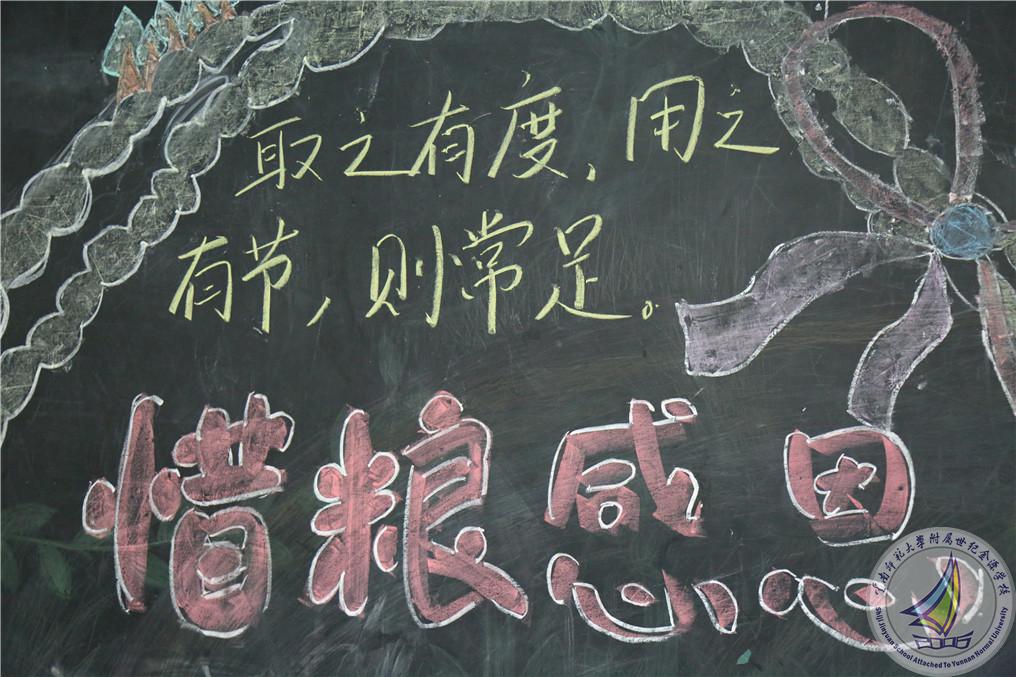 取之有度，用之
有节，则常足。
惜粮感恩
云南师范大学附属世纪金源学校
ShiJi JinYuan School Attached To Yunnan Normal University
2005